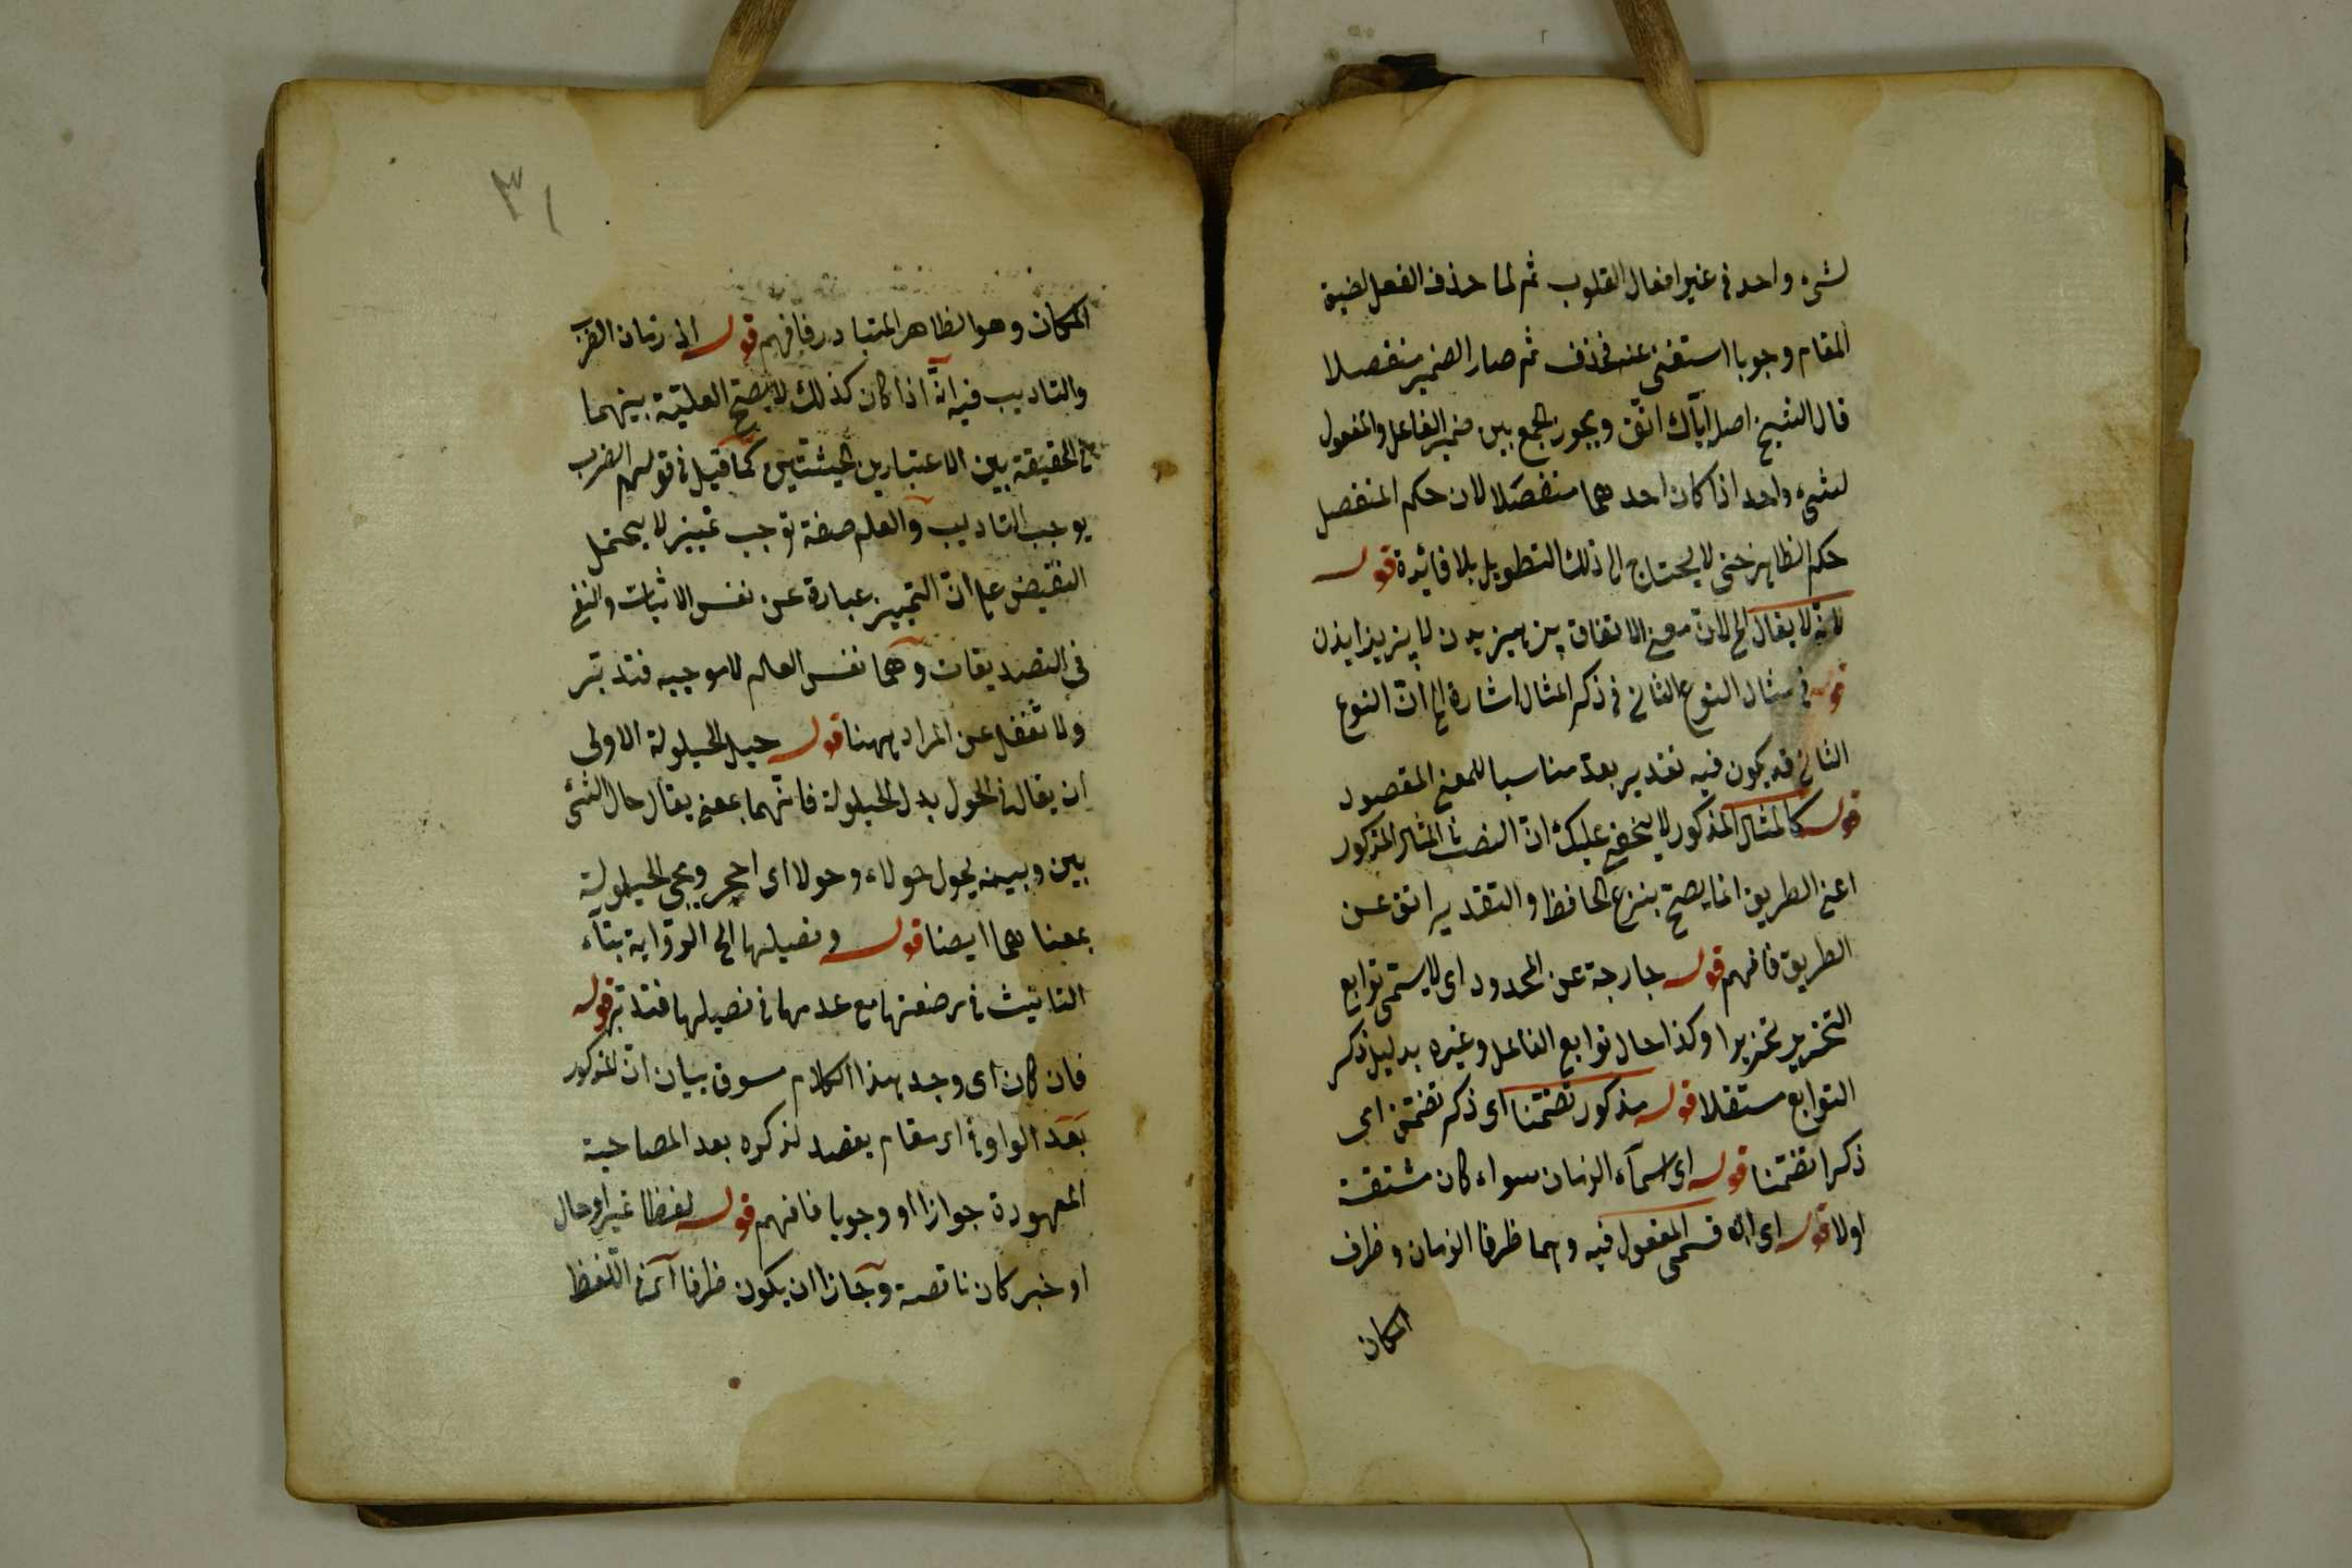 لشىء واحد فى غير افعال القلوب ثم لما حذف الفعل لضيق
المقام وجوبا استغنى عنه فحذف ثم صار الضمير منفصلا
قال الشيخ اصل اياك اتق ويجوز الجمع بين ضمير الفاعل والمفعول
لشىء واحد اذا كان احدهما منفصلا لان حكم المنفصل
حكم الظاهر حتى لا يحتاج الى ذلك التطويل بلا فائدة قوله
لانه لا يقال الخ لان معنى الاتفاق
قوله فى مثال النوع الثانى فى ذكر المثال اشارة الى ان النوع
الثانى قد يكون فيه تقدير بعد مناسبا للمعنى المقصود
قوله كالمثال المذكور لا يخفى عليك ان النصب فى المثال المذكور
اعنى الطريق انما يصح بنزع الخافض والتقدير اتق عن
الطريق فافهم قوله خارجة عن المحدود اى لا يسمى توابع
التحذير تحذيرا وكذا حال توابع الفاعل وغيره بدليل ذكر
التوابع مستقلا قوله مذكور تضمنا اى ذكر تضمن اى
ذكرا تضمنا قوله اى اسماء الزمان سواء كان مشتقة
اولا قوله اى ان قسمى المفعول فيه وهما ظرفا الزمان وظرف
المكان
٣١
المكان وهو الظاهر المتبادر فافهم قوله اذ زمان الضرب
والتاديب فيه انه اذا كان كذلك لا يصح العلية بينهما
فى الحقيقة بين الاعتبارين الحيثيتين كما قيل فى قولهم الضرب
يوجب التاديب والعلم صفة توجب تمييز لا يحتمل
النقيض على ان التمييز عبارة عن نفس الاثبات والنفى
فى التصديقات وهما نفس العلم لا موجبه فتدبر
ولا تغفل عن المراد ههنا قوله حيل الحيلولة الاولى
ان يقال فى الحول بدل الحيلولة فانهما بمعنى يقال حال الشئ
بين وبينه يحول حولا وحولا اى احجر ويجى الحيلولة
بمعناهما ايضا قوله وفصيلها الخ الرواية بتاء
التانيث فى رضعتها مع عدمها فى فصيلها فتدبر قوله
فان كان اى وجد هذا الكلام سوق بيان ان المذكور
بعد الواو فى اى مقام يقصد لذكره بعد المصاحبة
المعهودة جوازا او وجوبا فافهم قوله لفظا تمييز او حال
او خبر كان ناقصة وجاز ان يكون ظرفا اى فى اللفظ